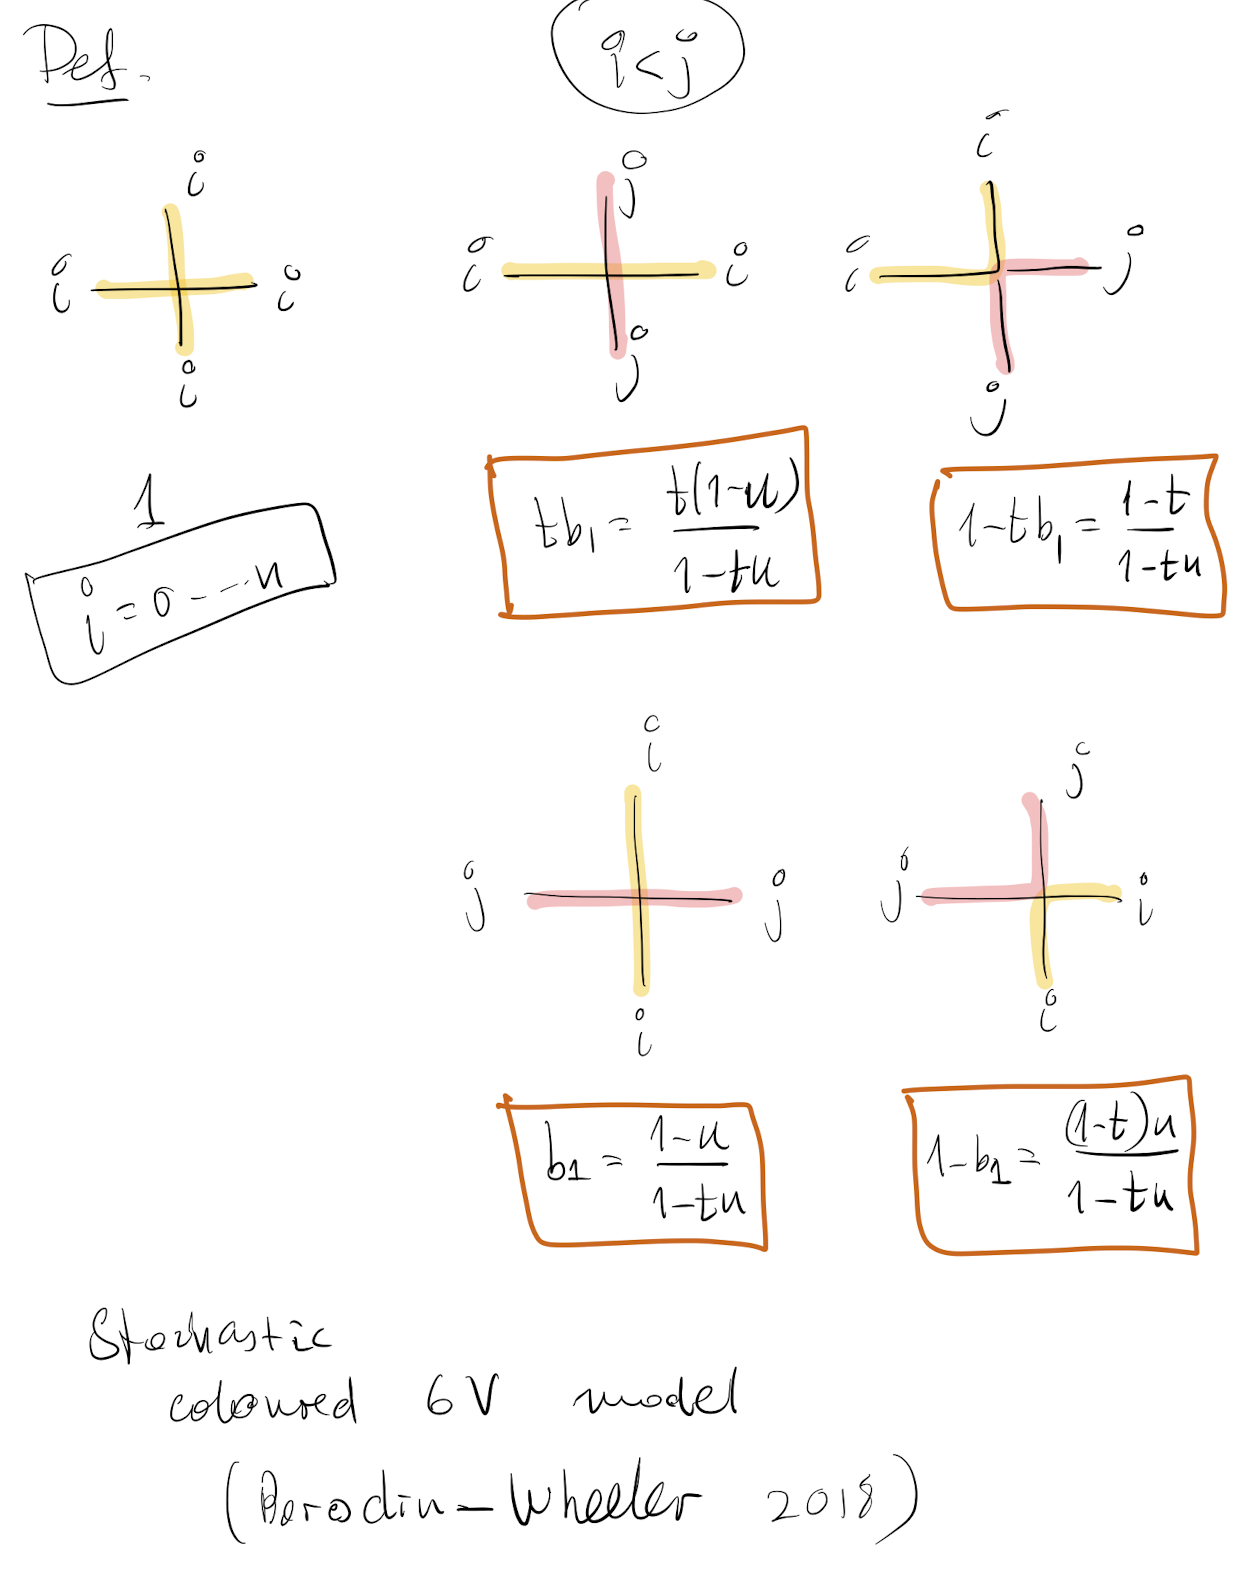 Def.
i<j
i
i i
i
j
i i
j
i
i j
j
1
i = 0 - - - n
tb₁ = t(1-u)/(1-tu)
1-tb₁ = (1-t)/(1-tu)
i
j j
i
j
j i
i
b₁ = (1-u)/(1-tu)
1-b₁ = (1-t)u/(1-tu)
Stochastic
coloured 6V model
(Borodin-Wheeler 2018)